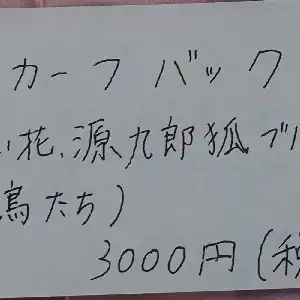 カーフバック
い花、源九郎狐ブル
鳥たち)
3000円(税